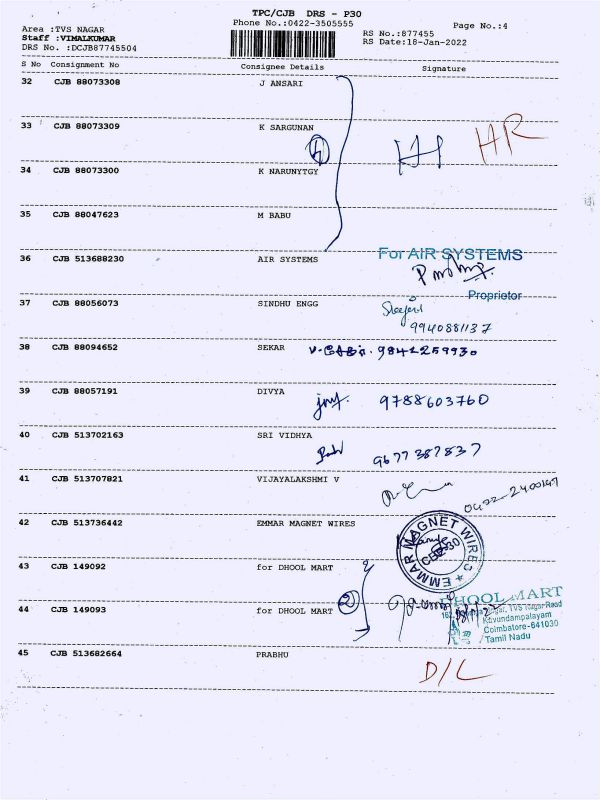 TPC/CJB DRS - P30
Area :TVS NAGAR
Phone No.:0422-3505555
Page No.:4
Staff :VIMALKUMAR
RS No.:877455
DRS No. :DCJB87745504
RS Date:18-Jan-2022
S No Consignment No Consignee Details Signature
32 CJB 88073308 J ANSARI
33 CJB 88073309 K SARGUNAN
4 HR
34 CJB 88073300 K NARUNYTGY
35 CJB 88047623 M BABU
36 CJB 513688230 AIR SYSTEMS
For AIR SYSTEMS
Proprietor
37 CJB 88056073 SINDHU ENGG
9940881137
38 CJB 88094652 SEKAR 9841259930
39 CJB 88057191 DIVYA
9788603760
40 CJB 513702163 SRI VIDHYA
9677387837
41 CJB 513707821 VIJAYALAKSHMI V
0422-2400147
42 CJB 513736442 EMMAR MAGNET WIRES
EMMAR MAGNET WIRES
CBE-30
43 CJB 149092 for DHOOL MART
2
DHOOL MART
44 CJB 149093 for DHOOL MART
TVS Nagar Road
Kavundampalayam
Coimbatore-641030
Tamil Nadu
45 CJB 513682664 PRABHU
D/L